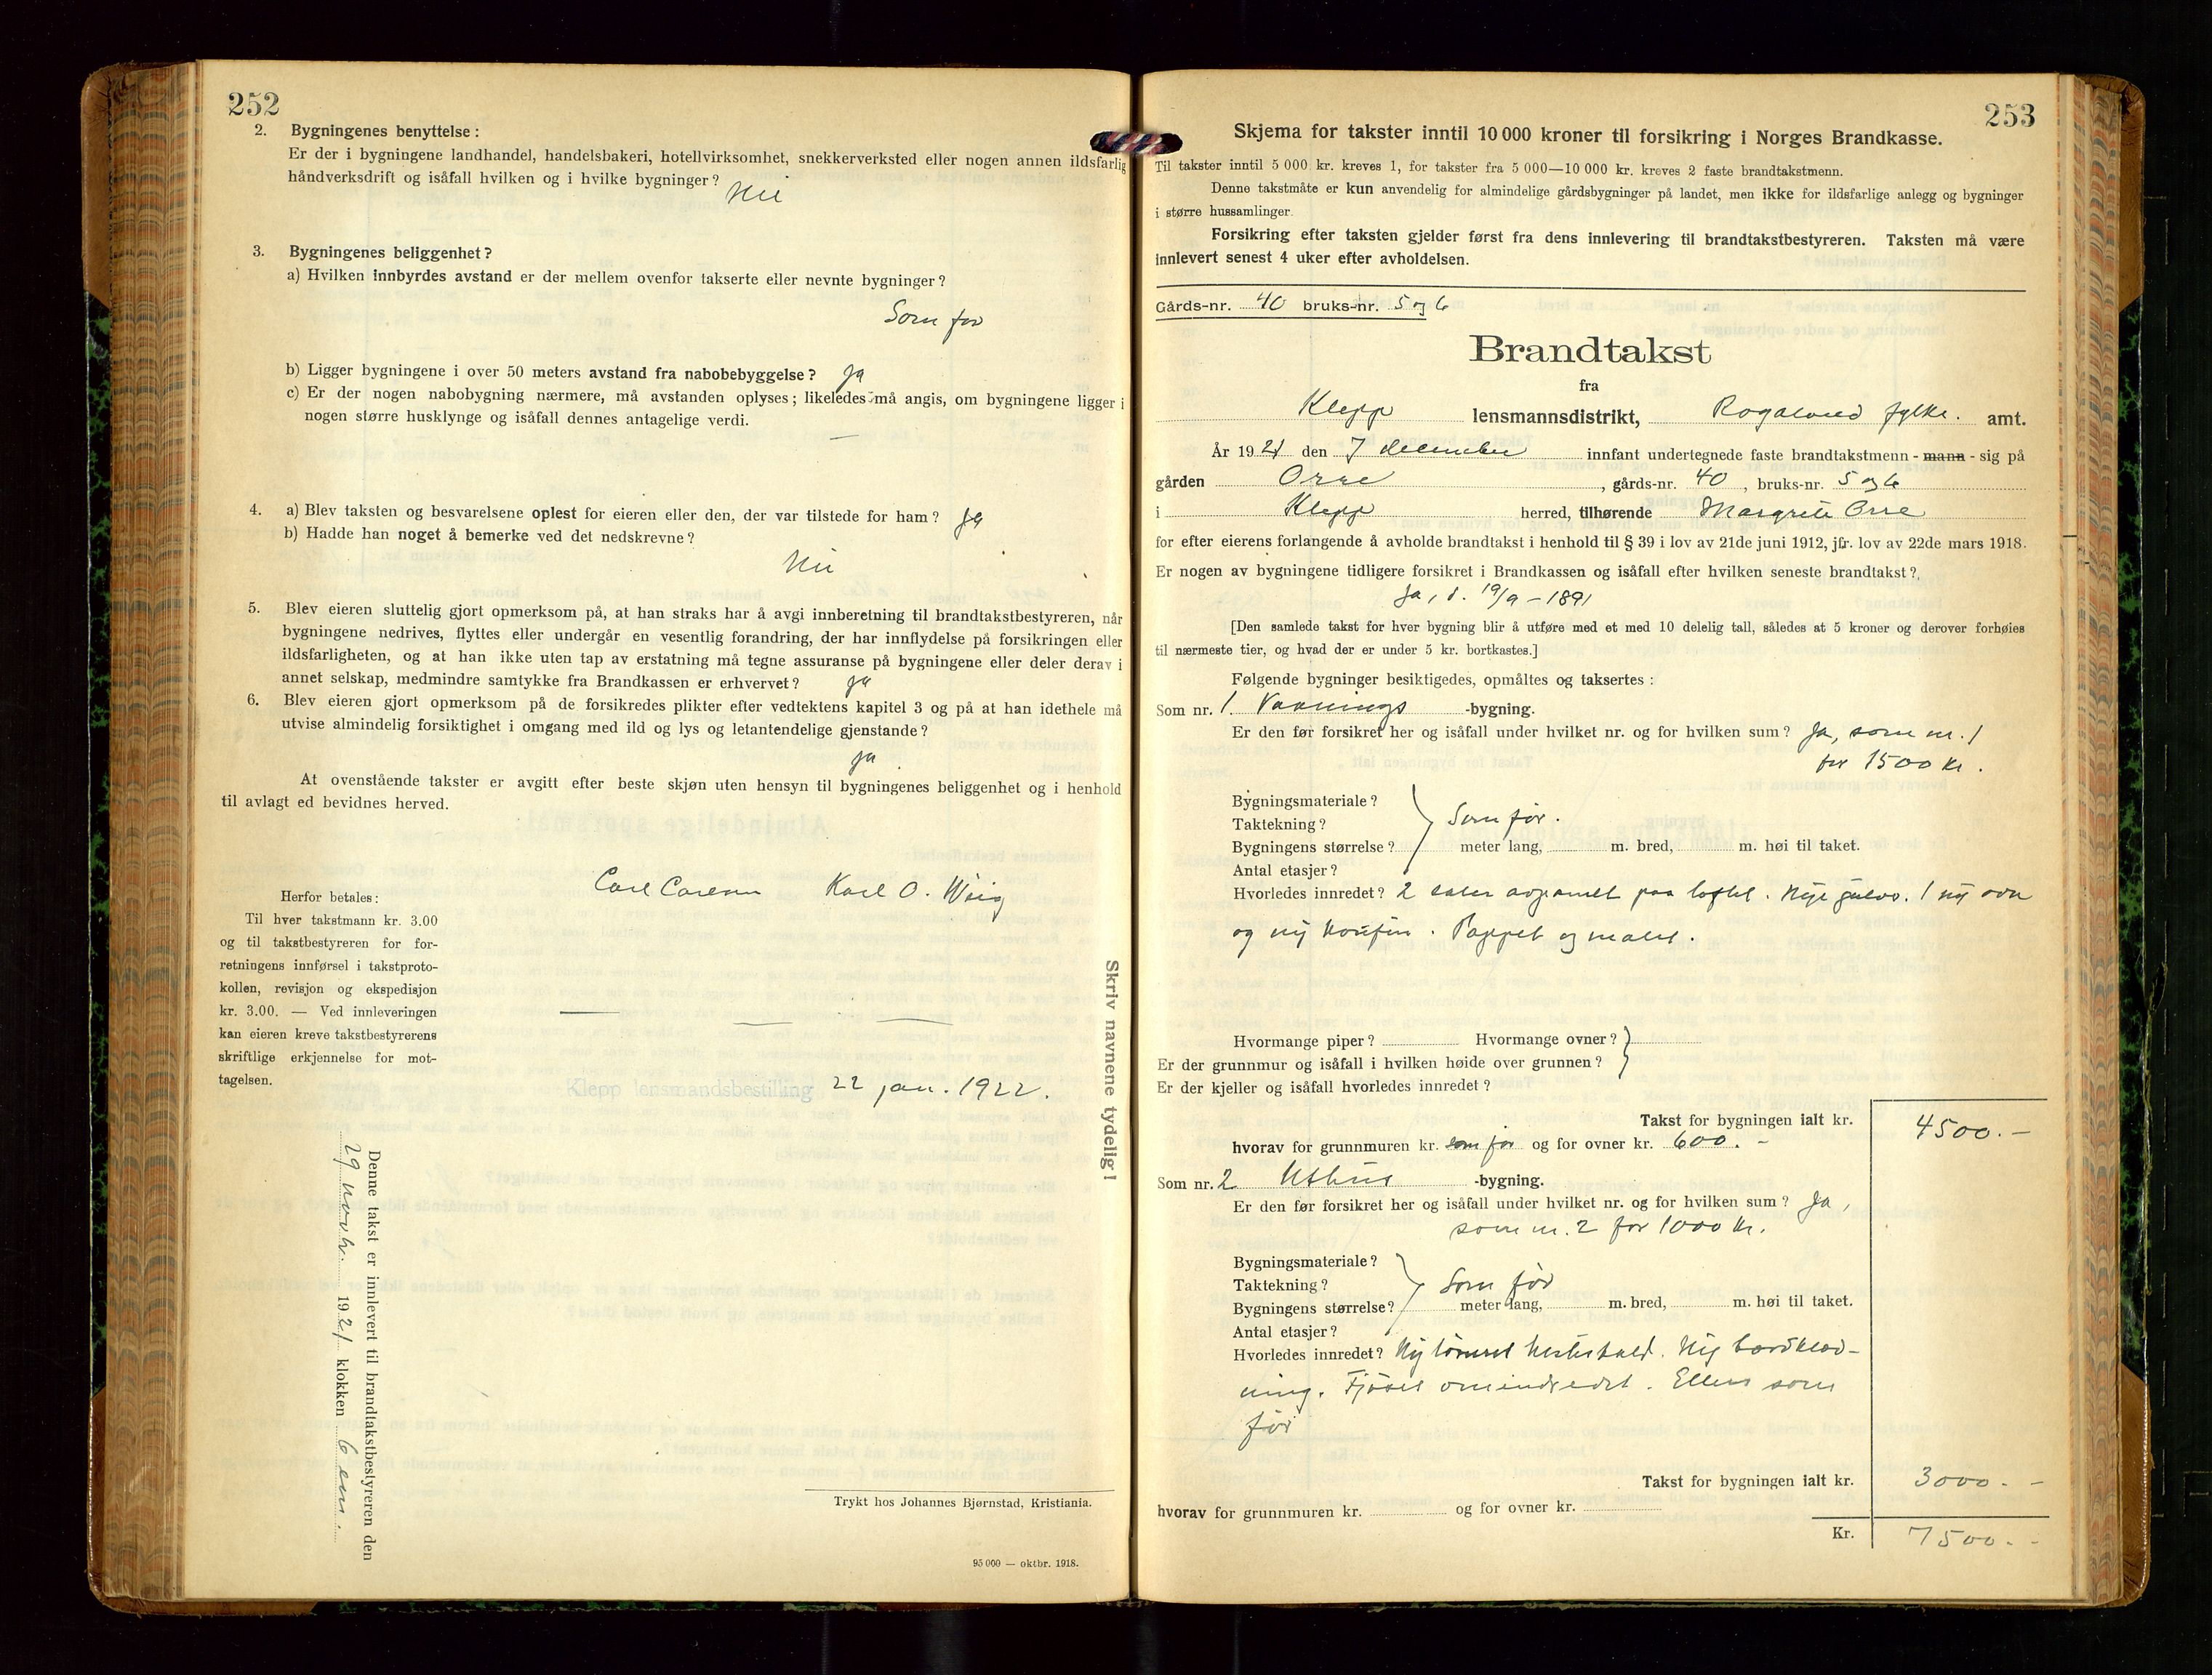 252
2. Bygningenes benyttelse:
Er der i bygningene landhandel, handelsbakeri, hotellvirksomhet, snekkerverksted eller nogen annen ildsfarlig
håndverksdrift og isåfall hvilken og i hvilke bygninger? Nei
3. Bygningenes beliggenhet?
a) Hvilken innbyrdes avstand er der mellem ovenfor takserte eller nevnte bygninger?
Som før
b) Ligger bygningene i over 50 meters avstand fra nabobebyggelse? Ja
c) Er der nogen nabobygning nærmere, må avstanden oplyses; likeledes må angis, om bygningene ligger i
nogen større husklynge og isåfall dennes antagelige verdi.
—
4. a) Blev taksten og besvarelsene oplest for eieren eller den, der var tilstede for ham? Ja
b) Hadde han noget å bemerke ved det nedskrevne?
Nei
5. Blev eieren sluttelig gjort opmerksom på, at han straks har å avgi innberetning til brandtakstbestyreren, når
bygningene nedrives, flyttes eller undergår en vesentlig forandring, der har innflydelse på forsikringen eller
ildsfarligheten, og at han ikke uten tap av erstatning må tegne assuranse på bygningene eller deler derav i
annet selskap, medmindre samtykke fra Brandkassen er erhvervet? Ja
6. Blev eieren gjort opmerksom på de forsikredes plikter efter vedtektens kapitel 3 og på at han idethele må
utvise almindelig forsiktighet i omgang med ild og lys og letantendelige gjenstande?
Ja
At ovenstående takster er avgitt efter beste skjøn uten hensyn til bygningenes beliggenhet og i henhold
til avlagt ed bevidnes herved.
Carl Carlsen Karl O. Wiig
Herfor betales:
Til hver takstmann kr. 3.00
og til takstbestyreren for for-
retningens innførsel i takstproto-
kollen, revisjon og ekspedisjon
kr. 3.00. — Ved innleveringen
kan eieren kreve takstbestyrerens
skriftlige erkjennelse for mot-
tagelsen.
Klepp lensmandsbestilling 22 jan. 1922.
Skriv navnene tydelig!
Denne takst er innlevert til brandtakstbestyreren den
29 novbr. 1921 klokken 6 em.
Trykt hos Johannes Bjørnstad, Kristiania.
95 000 — oktbr. 1918.
253
Skjema for takster inntil 10 000 kroner til forsikring i Norges Brandkasse.
Til takster inntil 5 000 kr. kreves 1, for takster fra 5 000—10 000 kr. kreves 2 faste brandtakstmenn.
Denne takstmåte er kun anvendelig for almindelige gårdsbygninger på landet, men ikke for ildsfarlige anlegg og bygninger
i større hussamlinger.
Forsikring efter taksten gjelder først fra dens innlevering til brandtakstbestyreren. Taksten må være
innlevert senest 4 uker efter avholdelsen.
Gårds-nr. 40 bruks-nr. 5 og 6
Brandtakst
fra
Klepp lensmannsdistrikt, Rogaland fylke. amt.
År 1921 den 7 december innfant undertegnede faste brandtakstmenn - mann - sig på
gården Orre, gårds-nr. 40, bruks-nr. 5 og 6
i Klepp herred, tilhørende Margrete Orre
for efter eierens forlangende å avholde brandtakst i henhold til § 39 i lov av 21de juni 1912, jfr. lov av 22de mars 1918.
Er nogen av bygningene tidligere forsikret i Brandkassen og isåfall efter hvilken seneste brandtakst?
Ja, d. 19/9 - 1891
[Den samlede takst for hver bygning blir å utføre med et med 10 delelig tall, således at 5 kroner og derover forhøies
til nærmeste tier, og hvad der er under 5 kr. bortkastes.]
Følgende bygninger besiktigedes, opmåltes og taksertes:
Som nr. 1. Vaanings -bygning.
Er den før forsikret her og isåfall under hvilket nr. og for hvilken sum? Ja, som nr. 1
for 1500 kr.
Bygningsmateriale?
Taktekning? Som før.
Bygningens størrelse? meter lang, m. bred, m. høi til taket.
Antal etasjer?
Hvorledes innredet? 2 saler avpanelt paa loftet. Nye gulve. 1 ny ovn
og ny komfur. Pappet og malet.
Hvormange piper? Hvormange ovner?
Er der grunnmur og isåfall i hvilken høide over grunnen?
Er der kjeller og isåfall hvorledes innredet?
Takst for bygningen ialt kr. 4500.—
hvorav for grunnmuren kr. som før og for ovner kr. 600.-
Som nr. 2 Uthus -bygning.
Er den før forsikret her og isåfall under hvilket nr. og for hvilken sum? Ja,
som nr. 2 for 1000 kr.
Bygningsmateriale?
Taktekning? Som før
Bygningens størrelse? meter lang, m. bred, m. høi til taket.
Antal etasjer?
Hvorledes innredet? Ny hestestald. Ny bordklæd-
ning. Fjøset omindredet. Ellers som
før
Takst for bygningen ialt kr. 3000.-
hvorav for grunnmuren kr. og for ovner kr.
Kr. 7500.-